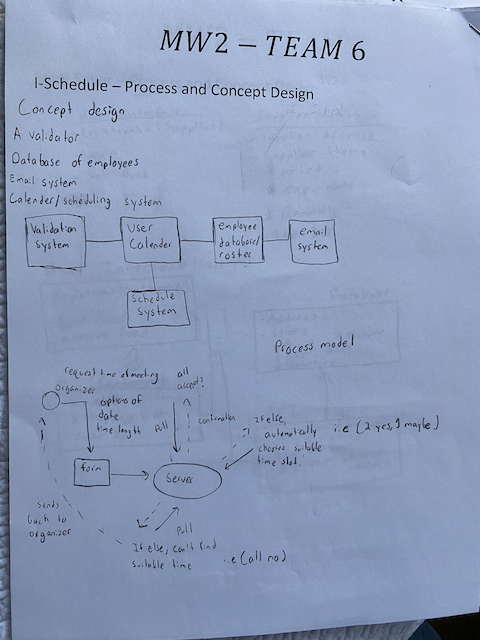 MW2 – TEAM 6
I-Schedule – Process and Concept Design
Concept design
A validator
Database of employees
Email system
Calender/scheduling system
Validation
system
User
Calender
employee
database/
roster
email
system
Schedule
System
Process model
request time of meeting
organizer
options of
date
time length
all
accept?
Pull
confirmation
If else,
automatically
chooses suitable
time slot.
i.e (2 yes, 1 maybe)
form
Server
sends
back to
organizer
Pull
If else, can't find
suitable time
i.e (all no)